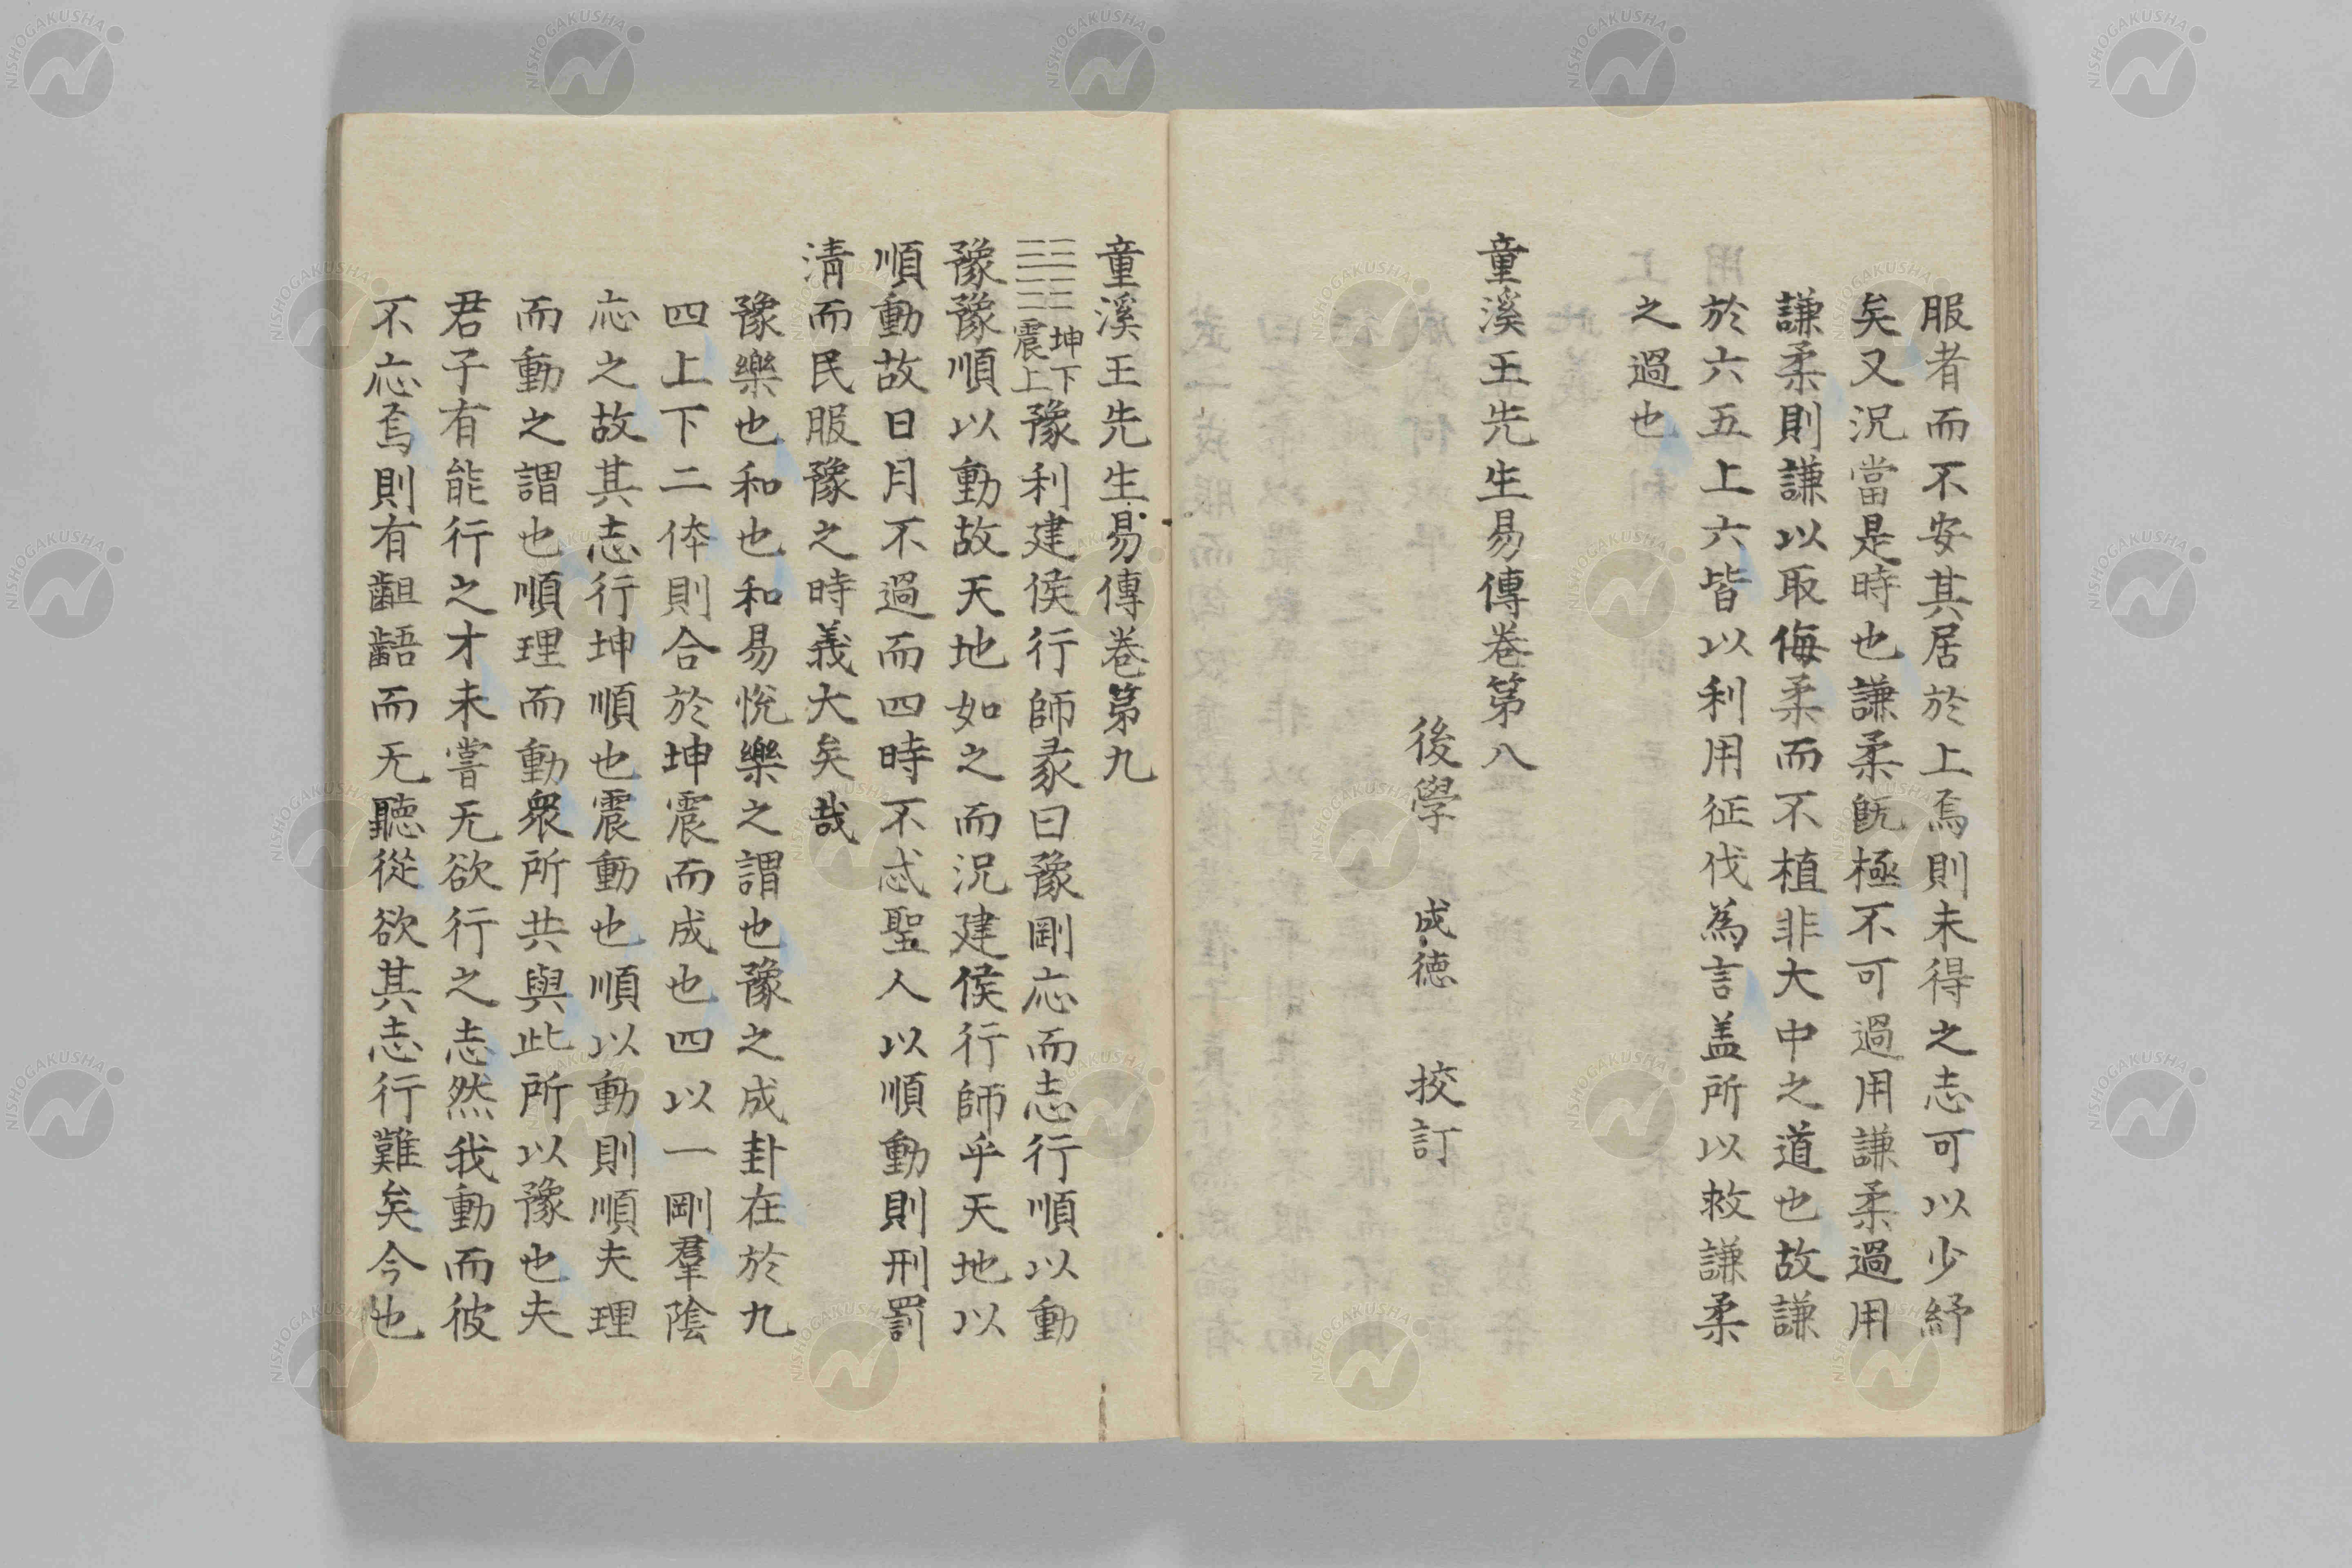 服者而不安其居於上焉則未得之志可以少紓
矣又況當是時也謙柔旣極不可過用謙柔過用
謙柔則謙以取侮柔而不植非大中之道也故謙
於六五上六皆以利用征伐為言盖所以救謙柔
之過也
童溪王先生易傳卷第八
後學 成德 挍訂
童溪王先生易傳卷第九
坤下震上豫利建侯行師彖曰豫剛応而志行順以動
豫豫順以動故天地如之而況建侯行師乎天地以
順動故日月不過而四時不忒聖人以順動則刑罰
淸而民服豫之時義大矣哉
豫樂也和也和易悅樂之謂也豫之成卦在於九
四上下二体則合於坤震而成也四以一剛羣陰
応之故其志行坤順也震動也順以動則順夫理
而動之謂也順理而動衆所共與此所以豫也夫
君子有能行之才未嘗无欲行之志然我動而彼
不応焉則有齟齬而无聽從欲其志行難矣今也
NISHOGAKUSHA